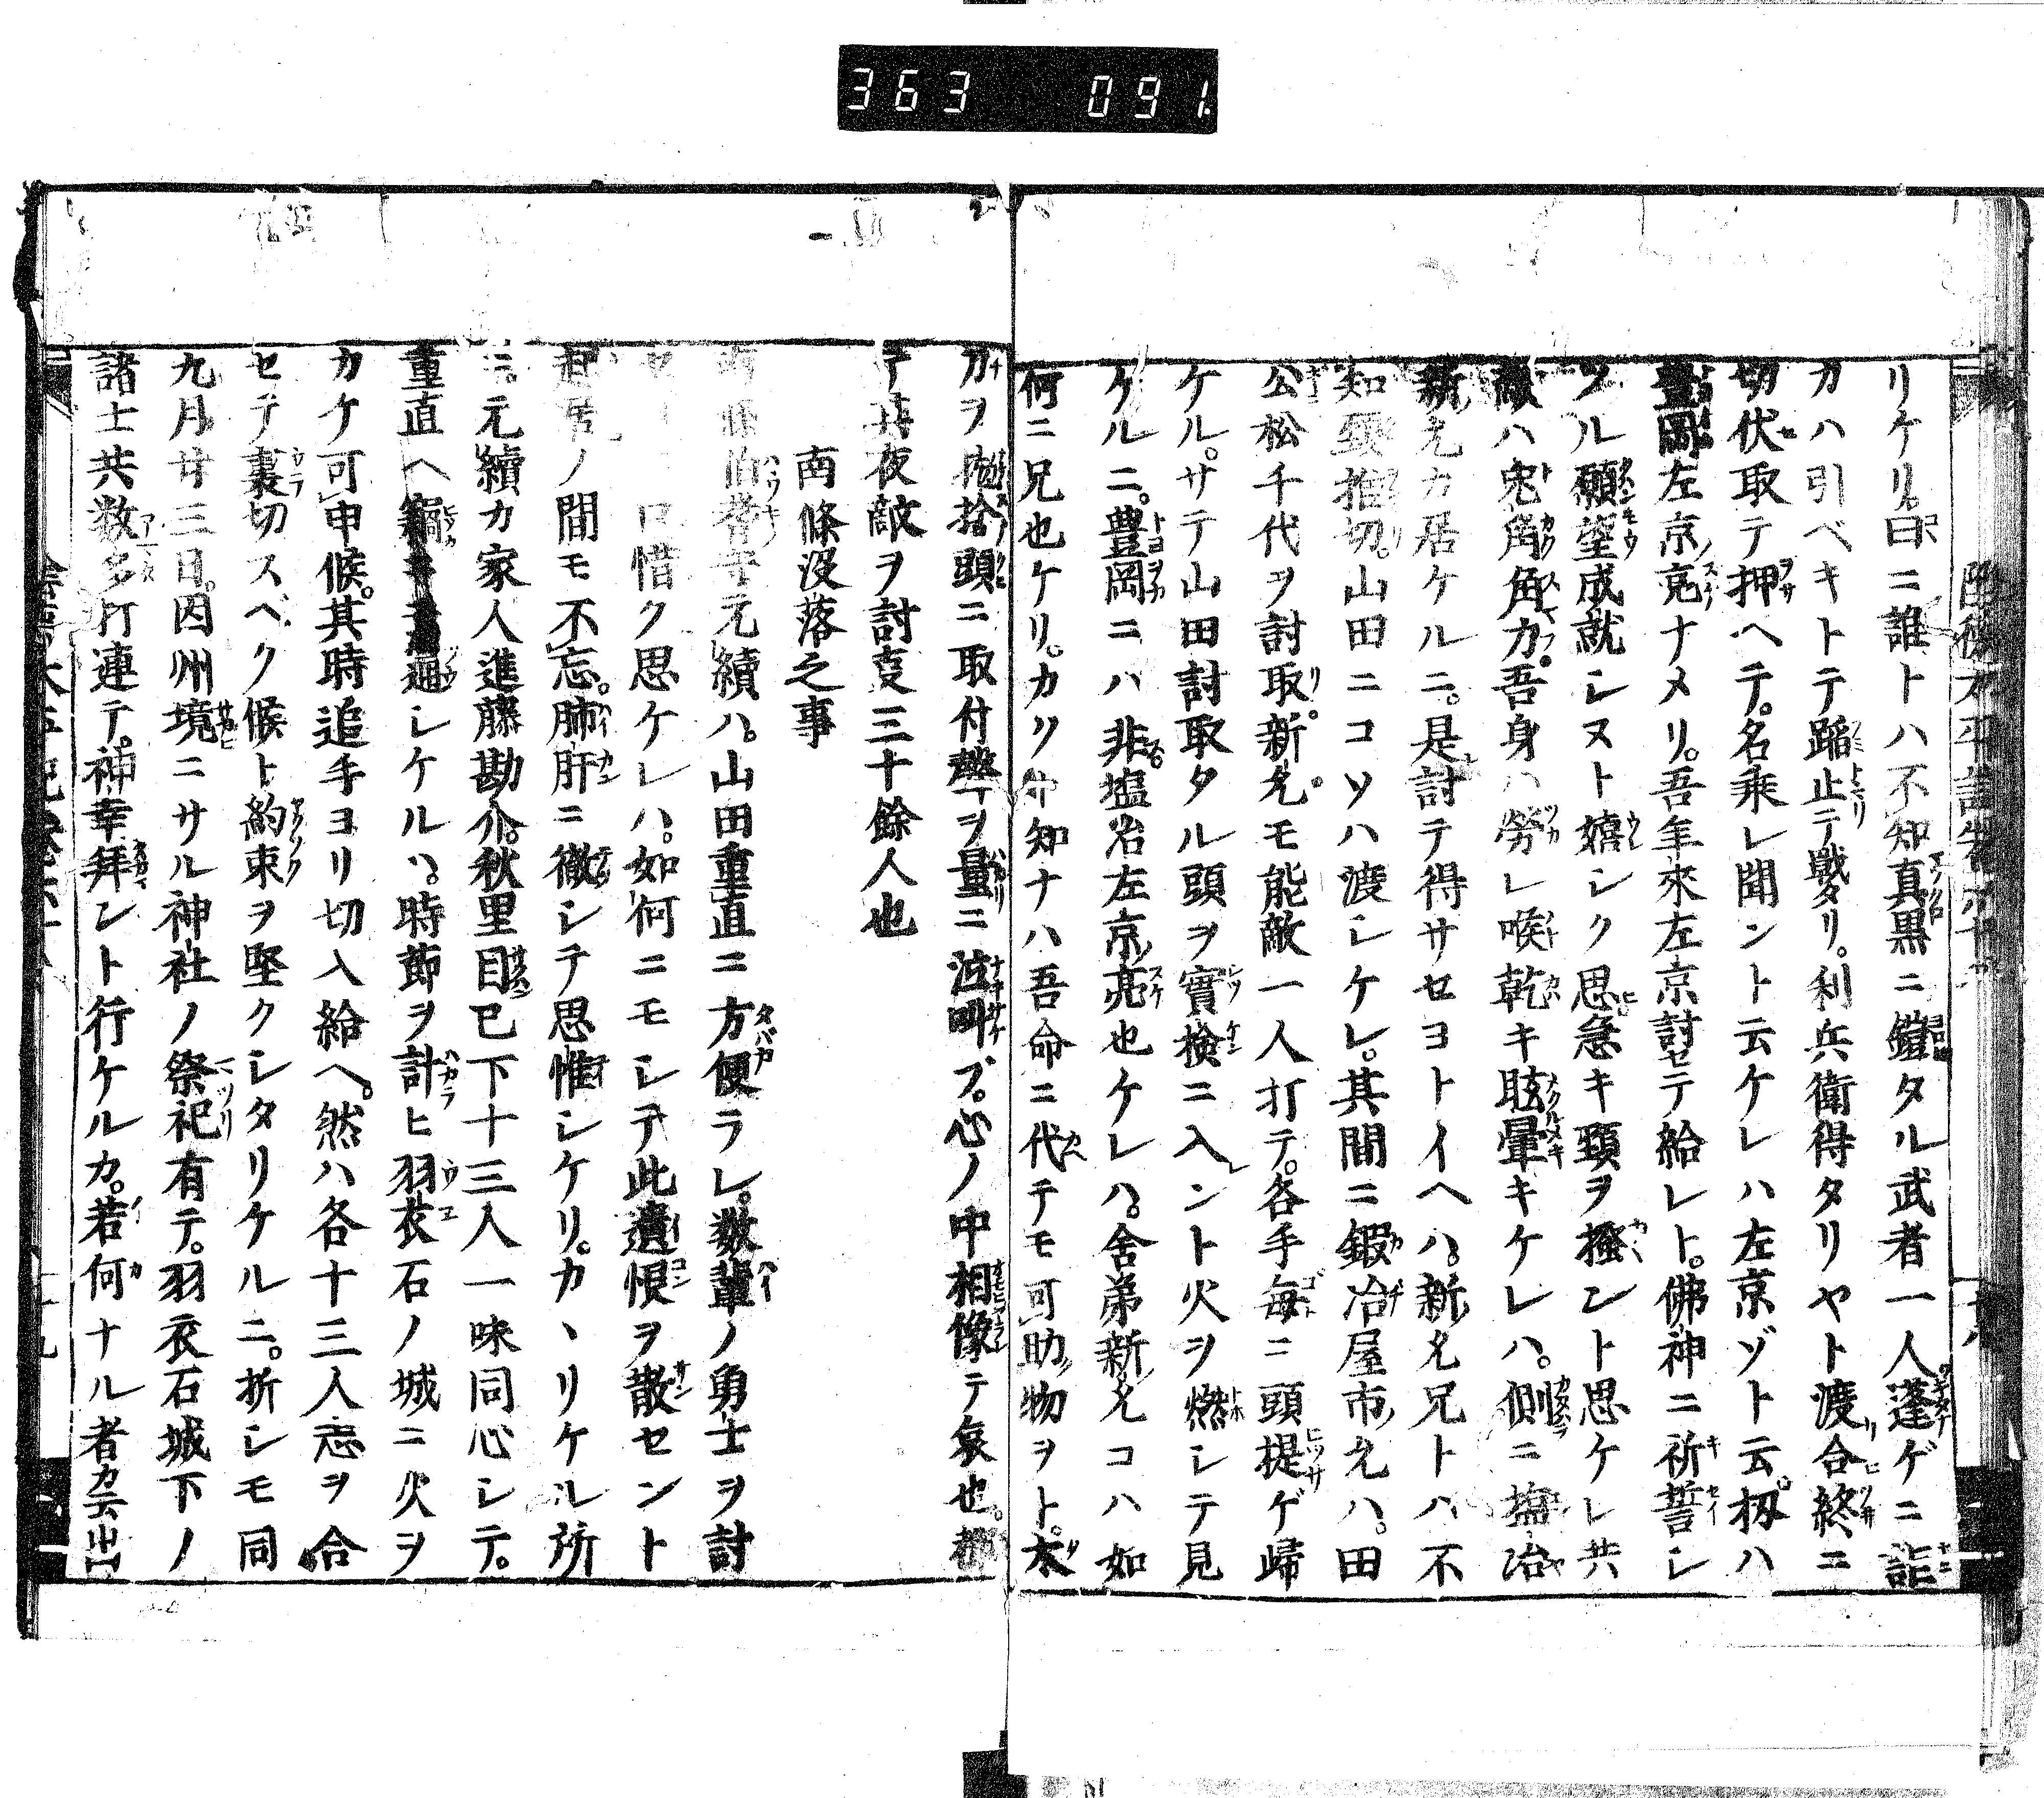 363 091
リケリ。日ニ誰トハ不知真黒ニ鎧タル武者一人蓬ゲニ詑
カハ引ベキトテ蹈止テ戰タリ。利兵衛得タリヤト渡合終ニ
切伏取テ押ヘテ。名乗レ聞ント云ケレハ左京ゾト云。扨ハ
豊岡左京亮ナメリ。吾年來左京討セテ給レト。佛神ニ祈誓レ
ツル願望成就シヌト嬉シク思急キ頸ヲ掻ント思ケレ共
敵ハ兎角角力。吾身ハ勞レ喉乾キ眩暈キケレハ。側ニ塩冶
新允カ居ケルニ。是討テ得サセヨトイヘハ。新允兄トハ不
知頸推切。山田ニコソハ渡シケレ。其間ニ鍜冶屋市允ハ。田
公松千代ヲ討取。新允モ能敵一人打テ。各手毎ニ頭提ゲ歸
ケル。サテ山田討取タル頭ヲ實検ニ入ント火ヲ燃シテ見
ケルニ。豊岡ニハ非塩冶左京亮也ケレハ。舎弟新允コハ如
何ニ兄也ケリ。カクト知ナハ吾命ニ代テモ可助物ヲト。太
刀ヲ抛捨頭ニ取付聲ヲ量ニ泣叫ブ。心ノ中相像テ哀也。都
テ其夜敵ヲ討支三十餘人也
南條没落之事
南條伯耆守元續ハ。山田重直ニ方便ラレ。数輩ノ勇士ヲ討
セ口惜ク思ケレハ。如何ニモシテ此遺恨ヲ散セント
起居ノ間モ不忘。肺肝ニ徹シテ思惟シケリ。カヽリケル所
ニ。元續カ家人進藤勘介。秋里目已下十三人一味同心シテ。
重直ヘ竊キ通シケルハ。時節ヲ計ヒ羽衣石ノ城ニ火ヲ
カケ可申候。其時追手ヨリ切入給ヘ。然ハ各十三人志ヲ合
セテ裏切スベク候ト約束ヲ堅クシタリケルニ。折シモ同
九月廿三日。因州境ニサル神社ノ祭祀有テ。羽衣石城下ノ
諸士共数多打連テ。神幸拜ント行ケルカ。若何ナル者カ云出